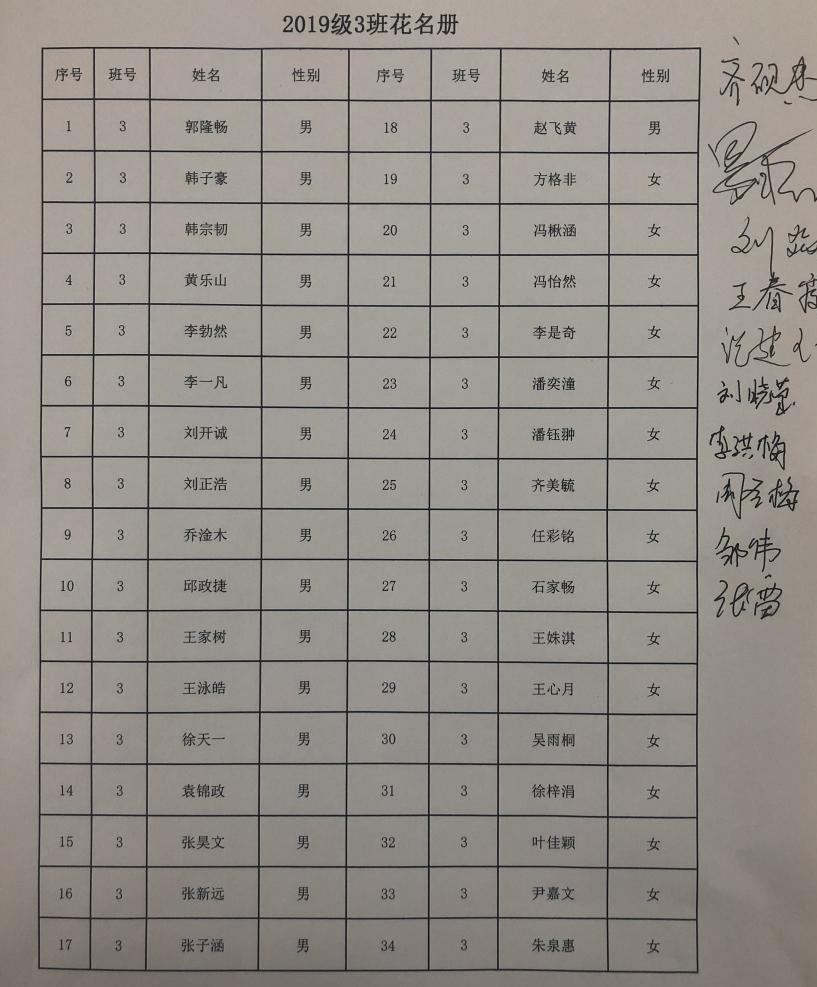 2019级3班花名册
序号 班号 姓名 性别 序号 班号 姓名 性别
1 3 郭隆畅 男 18 3 赵飞黄 男
2 3 韩子豪 男 19 3 方格非 女
3 3 韩宗韧 男 20 3 冯楸涵 女
4 3 黄乐山 男 21 3 冯怡然 女
5 3 李勃然 男 22 3 李是奇 女
6 3 李一凡 男 23 3 潘奕潼 女
7 3 刘开诚 男 24 3 潘钰翀 女
8 3 刘正浩 男 25 3 齐美毓 女
9 3 乔淦木 男 26 3 任彩铭 女
10 3 邱政捷 男 27 3 石家畅 女
11 3 王家树 男 28 3 王姝淇 女
12 3 王泳皓 男 29 3 王心月 女
13 3 徐天一 男 30 3 吴雨桐 女
14 3 袁锦政 男 31 3 徐梓涓 女
15 3 张昊文 男 32 3 叶佳颖 女
16 3 张新远 男 33 3 尹嘉文 女
17 3 张子涵 男 34 3 朱泉惠 女
齐砚
刘
王春
刘晓莹
李洪梅
周圣梅
邹伟
张雷